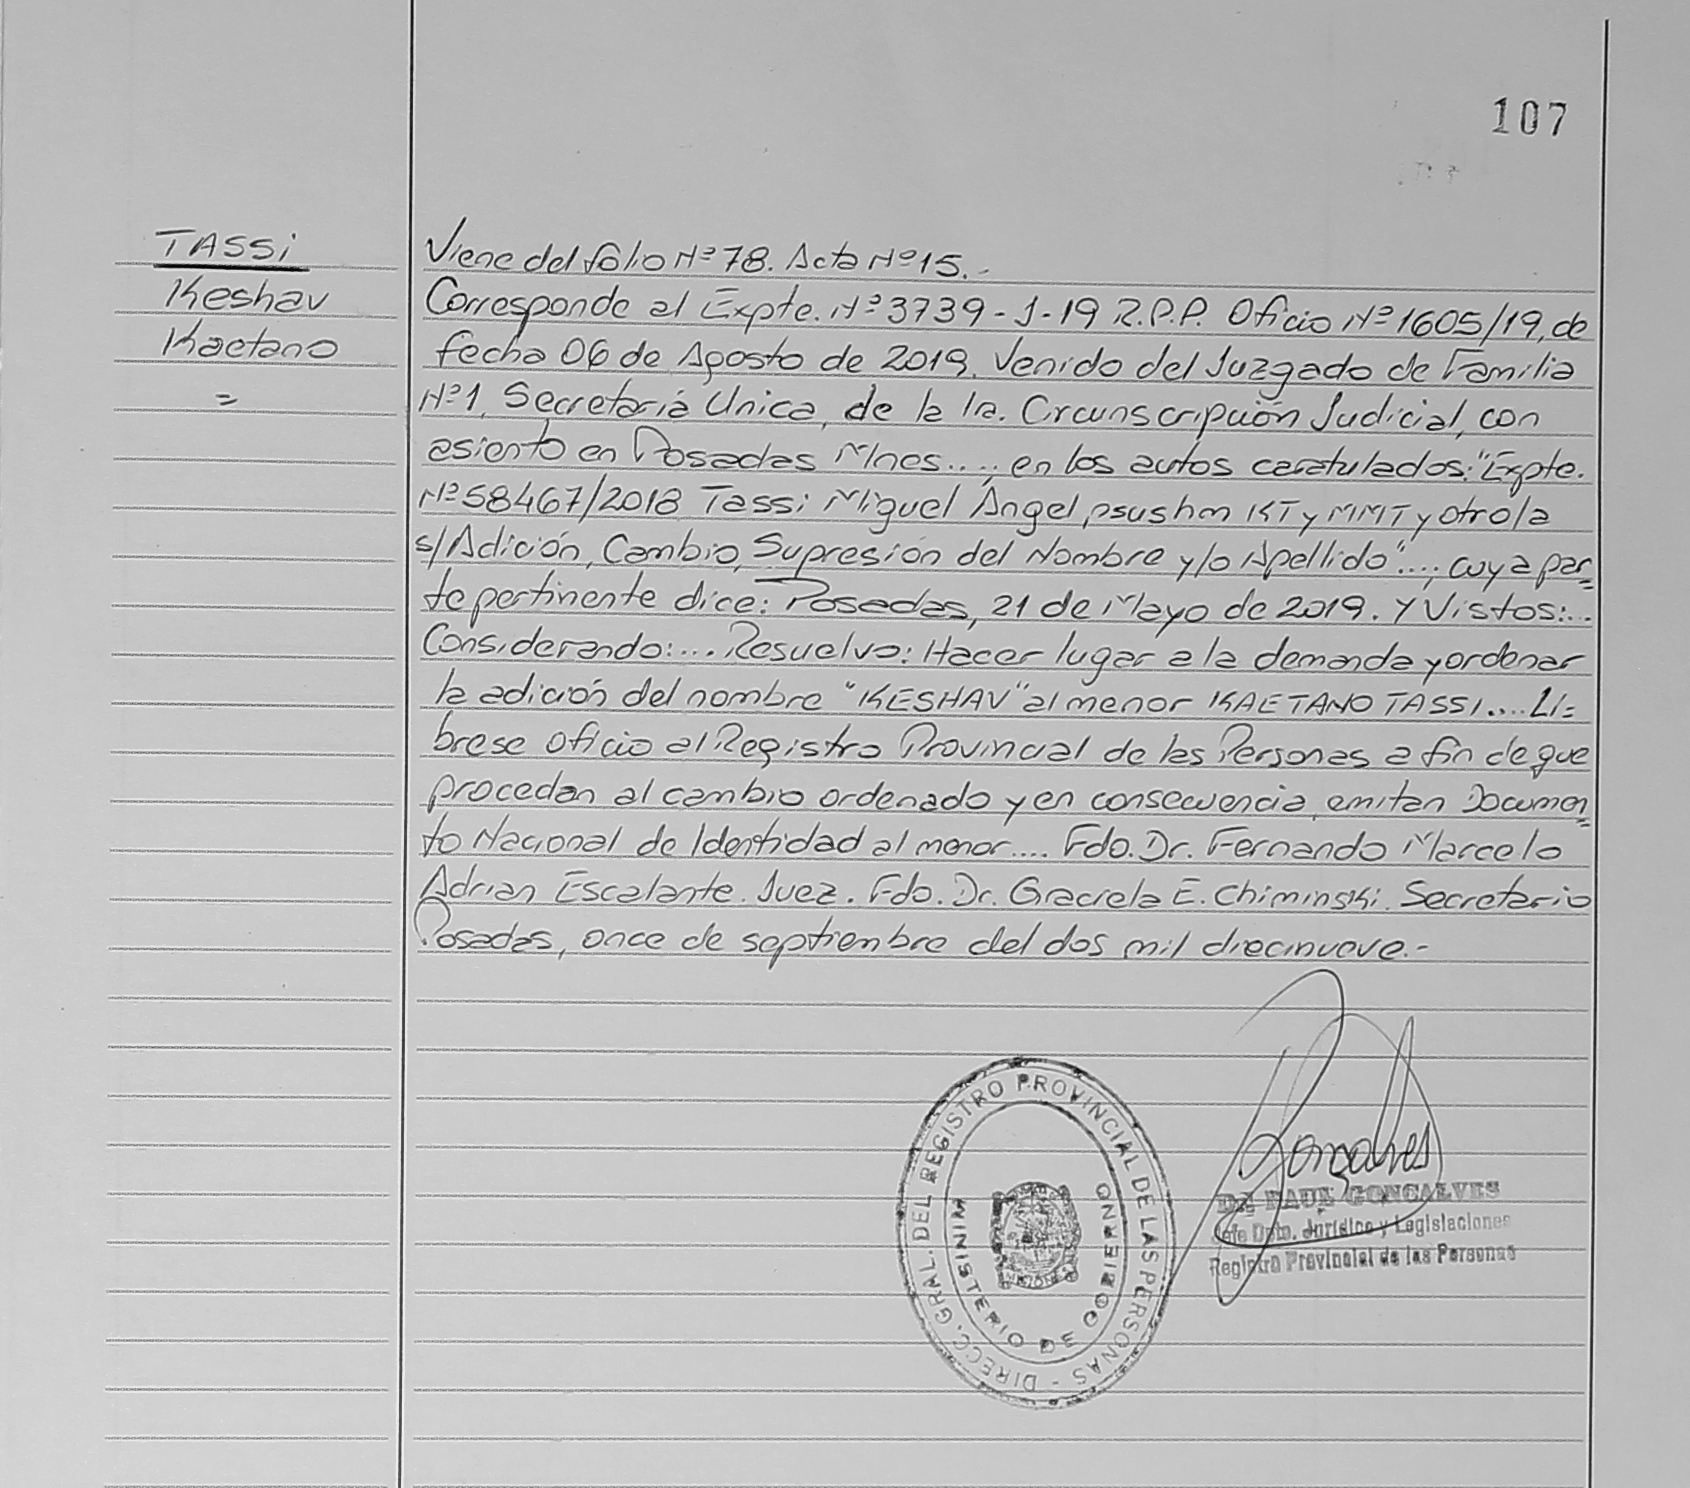 107
TASSi
Keshav
Kaetano
=
Viene del folio Nº 78. Acta Nº 15.-
Corresponde al Expte. Nº 3739-J-19 R.P.P. Oficio Nº 1605/19, de
fecha 06 de Agosto de 2019. Venido del Juzgado de Familia
Nº 1, Secretaría Unica, de la 1a. Circunscripción Judicial, con
asiento en Posadas Mnes...., en los autos caratulados: "Expte.
Nº 58467/2018 Tassi Miguel Ángel psushm KT y MMT y otro/a
s/Adición, Cambio, Supresión del Nombre y/o Apellido"...; cuya par=
te pertinente dice: Posadas, 21 de Mayo de 2019. Y Vistos:...
Considerando:... Resuelvo: Hacer lugar a la demanda y ordenar
la adición del nombre "KESHAV" al menor KAETANO TASSI.... Lí=
brese oficio al Registro Provincial de las Personas a fin de que
procedan al cambio ordenado y en consecuencia, emitan Documen=
to Nacional de Identidad al menor.... Fdo. Dr. Fernando Marcelo
Adrian Escalante. Juez. Fdo. Dr. Graciela E. Chiminski. Secretario
Posadas, once de septienbre del dos mil diecinueve.-
DIRECC. GRAL. DEL REGISTRO PROVINCIAL DE LAS PERSONAS -
MINISTERIO DE GOBIERNO
Gonçalves
GONCALVES
Jefe Dpto. Jurídico y Legislaciones
Registro Provincial de las Personas